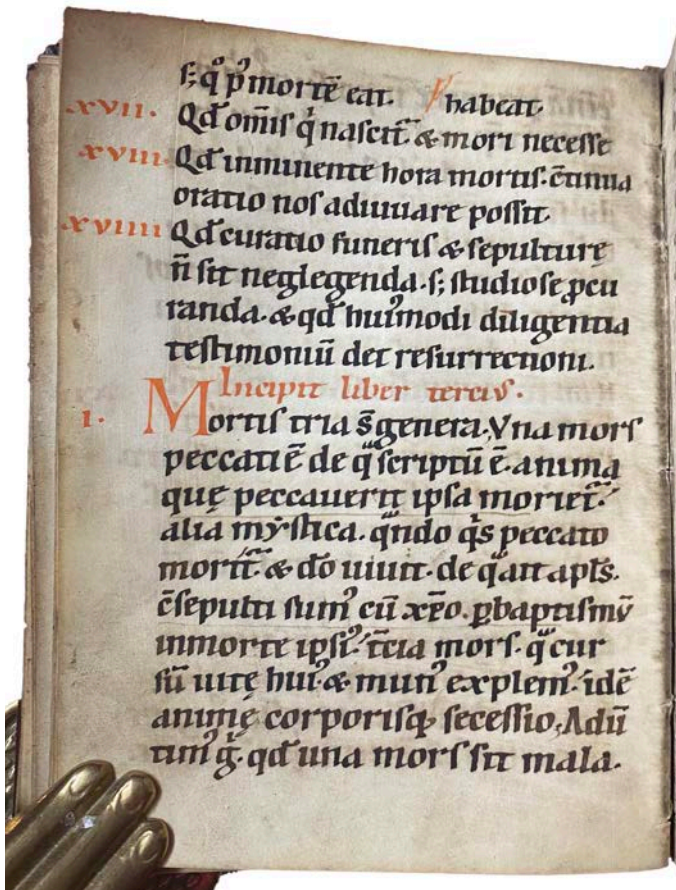 s; qº p' mortē eat. habeat.
xvii. Qđ om̄is q' nascit̃ & mori necesse
xviii. Qđ inminente hora mortis. c̄tinua
oratio nos adiuuare possit.
xviiii Qđ curatio funeris & sepulturę
n̄ sit neglegenda. s; studiose ꝓcu
randa. & qđ hui'modi diligentia
testimoniū det resurrectioni.
Incipit liber tercius.
i. Mortis tria s̄ genera. Vna mors
peccati ē de qª scriptū ē. anima
quę peccauerit ipsa moriet̃.
alia mẏstica. qªndo q's peccato
morit̃ & dō uiuit. de qª ait apls̄.
c̄sepulti sum' cū xp̄o. ꝑ baptismū
in morte ipsi'. t̄cia mors. qª cur
sū uitę hui' & mun' explem'. idē
animę corporisq; secessio, Adū
tim' g̊. qđ una mors sit mala.